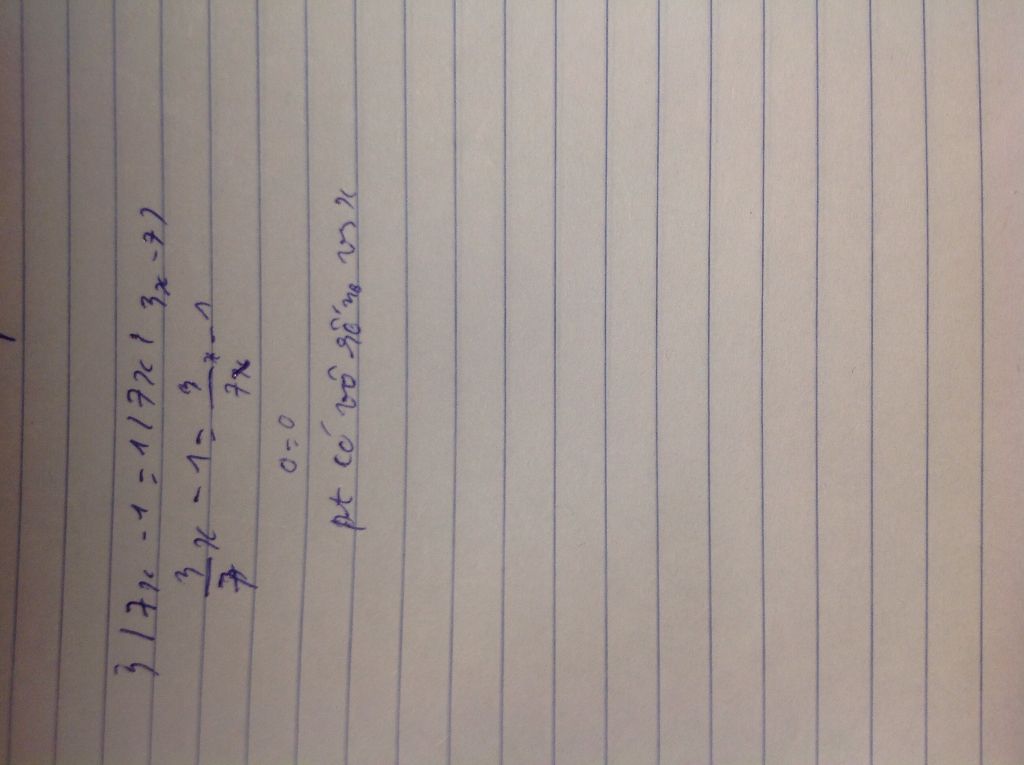 3/7x - 1 = 1/7x(3x-7)
3/7 x - 1 = 3/7x x - 1
0 = 0
pt có vô số no vs x